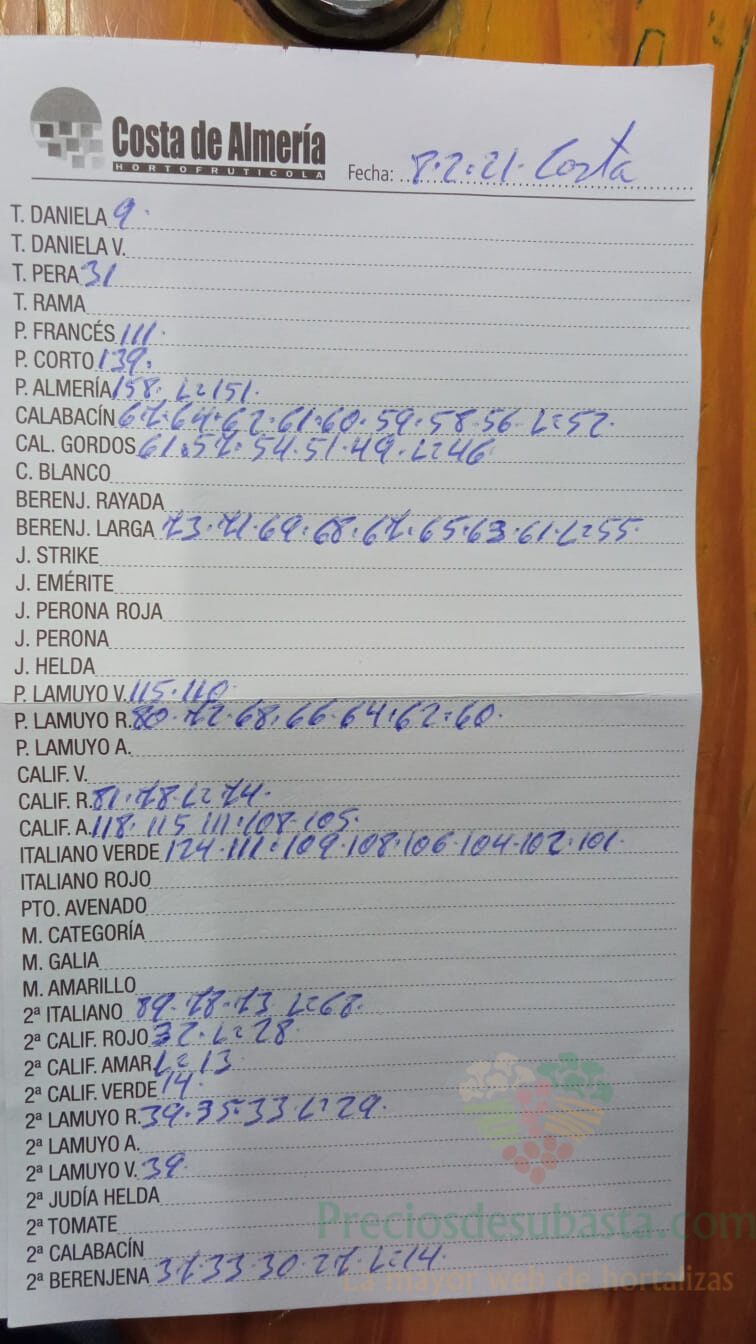 Costa de Almería
HORTOFRUTICOLA
Fecha: 8·2·21· Costa
T. DANIELA 9·
T. DANIELA V.
T. PERA 31
T. RAMA
P. FRANCÉS 111·
P. CORTO 139·
P. ALMERÍA 158· L=151·
CALABACÍN 67·64·62·61·60·59·58·56·L=52·
CAL. GORDOS 61·57·54·51·49·L=46
C. BLANCO
BERENJ. RAYADA
BERENJ. LARGA 73·71·69·68·67·65·63·61·L=55·
J. STRIKE
J. EMÉRITE
J. PERONA ROJA
J. PERONA
J. HELDA
P. LAMUYO V. 115·110·
P. LAMUYO R. 80·72·68·66·64·62·60·
P. LAMUYO A.
CALIF. V.
CALIF. R. 81·78·L=74·
CALIF. A. 118·115·111·108·105·
ITALIANO VERDE 124·111·109·108·106·104·102·101·
ITALIANO ROJO
PTO. AVENADO
M. CATEGORÍA
M. GALIA
M. AMARILLO
2ª ITALIANO 89·78·73 L=68·
2ª CALIF. ROJO 32·L=28
2ª CALIF. AMAR L=13
2ª CALIF. VERDE 14·
2ª LAMUYO R. 39·35·33 L=29·
2ª LAMUYO A.
2ª LAMUYO V. 39·
2ª JUDÍA HELDA
2ª TOMATE
2ª CALABACÍN
2ª BERENJENA 37·33·30·27·L=14·
Preciosdesubasta.com
La mayor web de hortalizas